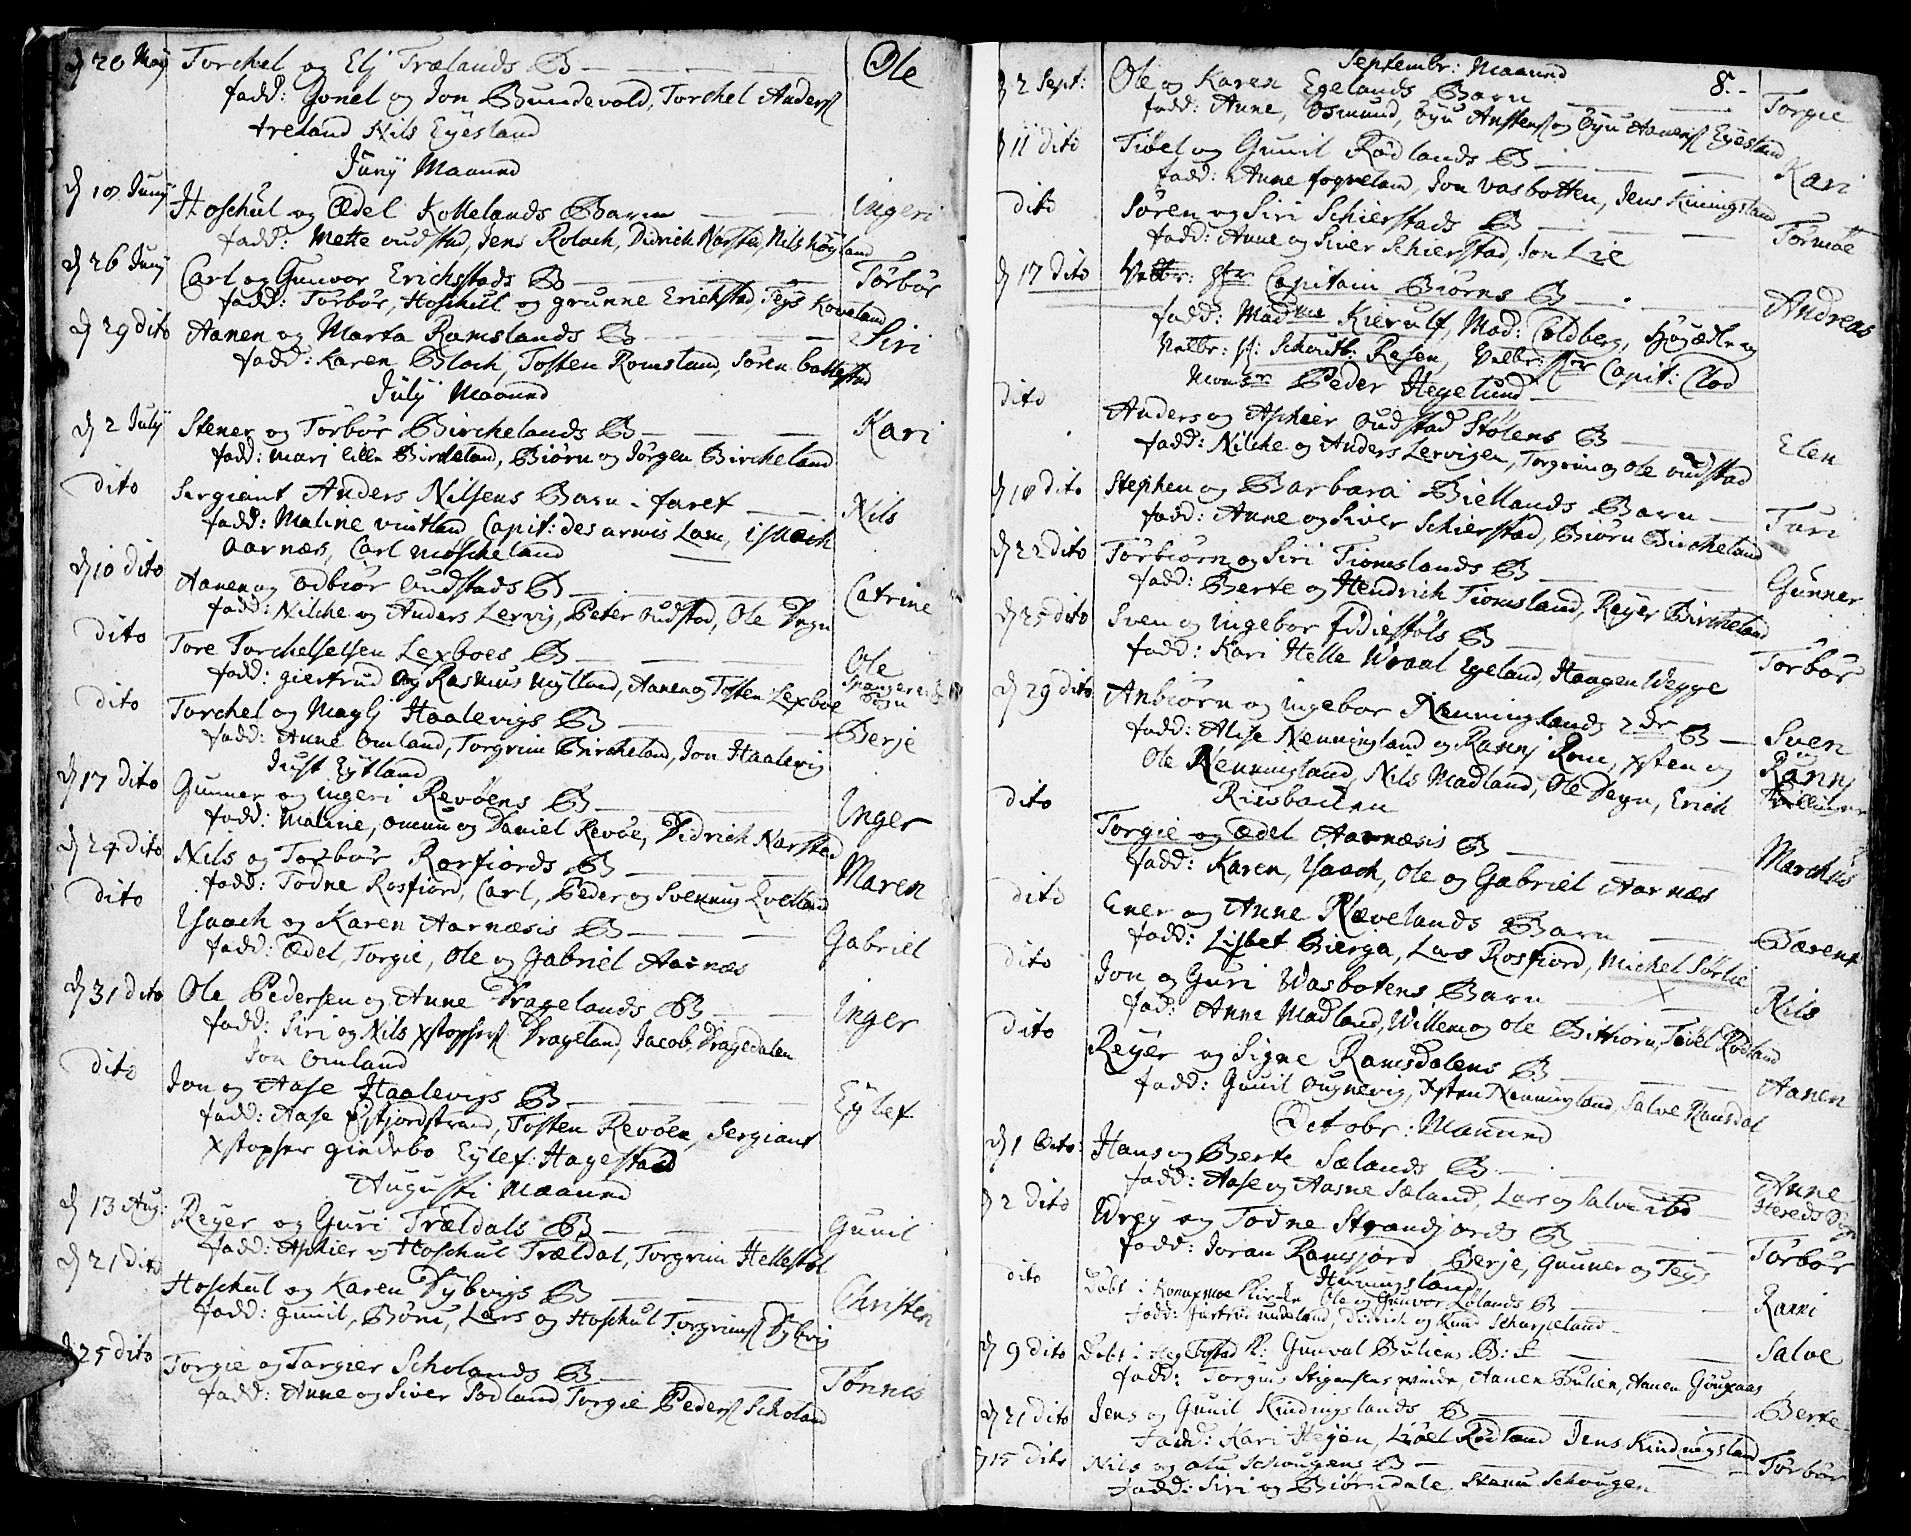 d 20 Maij Torchel og Elj Trælands B — Ole
fadd: Gonel og Jon Bundevold, Torchel Anders
treland Nils Eyesland
Junij Maanud
d 18 Junij Hoschul og Ædel Kollelands Barn — Ingeri
fadd: Mette oudstad, Jens Roloch, Didrich Narstad, Nils Høyland
d 26 Junij Carl og Gunvor Erichstads B — Torbor
fadd: Torbor, Hoschul og grunne Erichstad, Teys Koveland
d 29 dito Aanen og Marta Ramslands B — Siri
fadd: Karen Bloch, Tosten Romsland, Søren battestad
Julij Maanud
d 2 Julij Stener og Torbor Birchelands B — Kari
fadd: Mari lille Bircheland, Biørn og Jørgen Bircheland
dito Sergiant Anders Nilsens Barn i faret — Nils
fadd: Maline vintland Capit: des armis Lam, isaach
Aarnæs, Carl moscheland
d 10 dito Aanen og odbior oudstads B — Catrine
fadd: Nilche og Anders Lervig, Peter oudstad, Ole Degn
dito Tore Torchelselsen Lexboes B — Ole
fadd: giertrud og Rasmus nylland, Aanen og Tosten Lexboe
Sogn
dito Torchel og Maglj Haalevigs B — Berje
fadd: Anne Omland, Torgrim Bircheland, Jon Haalevig
Just Eytland
d 17 dito Gunner og ingeri Revøens B — Inger
fadd: Maline, omun og Daniel Revøe, Didrich Narstad
d 24 dito Nils og Torbor Rosfiords B — Maren
fadd: Todne Rosfiord, Carl, Peder og Svenning Qvelland
dito Ysaach og Karen Aarnæsis B — Gabriel
fadd: Ædel, Torgie, Ole og Gabriel Aarnæs
d 31 dito Ole Pedersen og Anne Dragelands B — Inger
fadd: Siri og Nils Xstophers Drageland, Jacob Dragedalen
Jon Omland
dito Jon og Aase Haalevigs B — Eylef
fadd: Aase Østfjordstrand, Tosten Revøen, Sergiant
Xstopher gindebo Eylef Hagestad
Augusti Maanud
d 13 Aug: Reyer og Guri Trældals B — Gunil
fadd: Aphier og Hoschul Trældal, Torgrim Hellestøl
d 21 dito Hoschul og Karen Dybvigs B — Christen
fadd: gunil, Børu, Lars og Hoschul Torgrims Dybvig
d 25 dito Torgie og Targier Scholands B — Tønnes
fadd: Anne og Siver Sodland Torgie Peders Scholand
Septembr: Maanud
8.
d 2 Sept: Ole og Karen Egelands Barn — Torgie
fadd: Anne, Osmund, Øyu Anstens og Øyu Aanens Eyesland
d 11 dito Tiøel og Gunil Rødlands B — Kari
fadd: Anne fogneland, Jon vasbotten, Jens Kiningsland
dito Søren og Siri Schierstads B — Tormoe
fadd: Anne og Siver Schierstad, Jon Lie
d 17 dito Velbr: Hr Capitain Biørns B — Andreas
fadd: Madme Kierulf, Mad: Coldberg, Høyædle og
Velbr: H: Schoutb: Resen, Velbr: Hr Capit: Clod
Monsr Peder Hegelund
dito Anders og Aphier oudstad Stølens B — Elen
fadd: Nilche og Anders Lervigen, Torgrim og Ole oudstad
d 18 dito Stephen og Barbara Biellands Barn — Turi
fadd: Anne og Siver Schierstad, Biørn Bircheland
d 22 dito Torbiørn og Siri Tiomslands B — Gunner
fadd: Berte og Hendrich Tiomsland, Reyer Bircheland
d 25 dito Sven og Ingebor fidiestøls B — Torbor
fadd: Kari Helle Wraal Egeland, Haagen Wegge
d 29 dito Anbiørn og Ingebor Nenninglands 2dr B — Sven
fadd: Alise Nenningland og Rannj Rom, Xsten og Rannj
Ole Nenningland, Nils Madland, Ole Degn, Erich
Riisbacken
dito Torgie og Ædel Aarnæsis B — Marchus
fadd: Karen, Ysaach, Ole og Gabriel Aarnæs
dito Ener og Anne Rævelands Barn — Bærent
fadd: Lisbet Bierga, Lars Rosfiord, Michel Sørlie
dito Jon og Guri Wasbotens Barn — Nils
fad: Anne Madland, Willem og Ole Bithiorn, Tøiel Rødland
dito Reyer og Signe Ramsdalens B — Aanen
fadd: Gunil ougnevig, Xsten Nenningland, Salve Ramsdal
Octobr: Maanud
d 1 Octo: Hans og Berte Sælands B — Anne
fadd: Aase og Aasne Sæland, Lars og Salve ibd
Hereds Sogn
d 2 dito Wrey og Todne Strandjords B — Torbor
fadd: Joran Ramsjord Berje, Gunner og Teys
Henningsland
dito Døbt i Konusmoe Kircke Ole og Gunvor Lølands B — Ranni
fadd: Giertrud undeland, Didrich og Knud Scharpeland
d 9 dito Døbt i Heg bostad K: Gunval Buliens B: S — Salve
fadd: Torgius Stigensens qvinde, Aanen Bulien, Aanen Gouxaas
d 21 dito Jens og Gunil Kindingslands B — Berte
fadd: Kari Heyen, Tiøel Rødland Jens Kindningsland
d 15 dito Nils og olu Schougens B — Torbor
fadd: Siri og Biørndale, Stenu Schougen